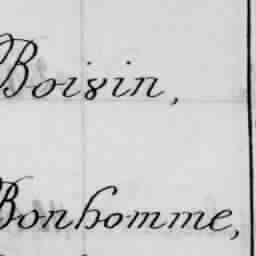 Boisin,
Bonhomme,